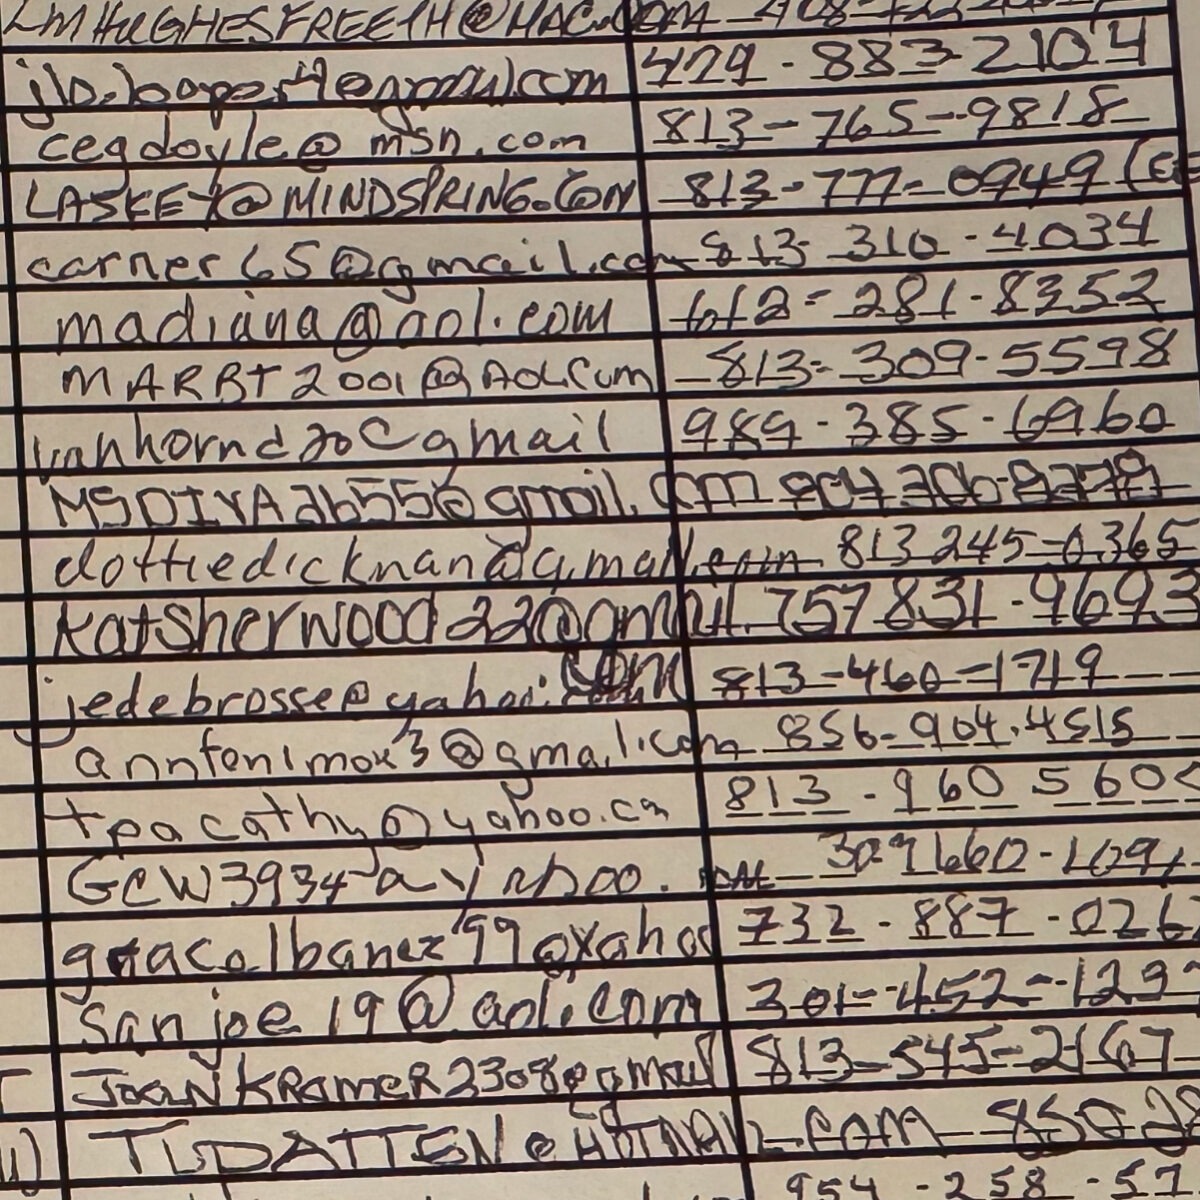 LMHUGHESFREETH@MAC.COM
429-883-2104
cegdoyle@msn.com 813-765-9818
LASKEY@MINDSPRING.COM 813-777-0949
carner65@gmail.com 813-310-4034
madiana@aol.com 612-281-8352
MARBT2001@AOL.Com 813-309-5598
vanhornd20@gmail 989-385-6960
MSDIVA2655@gmail.com
dottiedicknan@gmail.com 813 245-0365
Katsherwood22@gmail. 757 831-9693
com
jedebrosse@yahoo. 813-460-1719
@gmail.com 856-904.4515
tpacathy@yahoo.co 813-960 560
GCW3934
@yahoo 732-887-026
sanjoe19@aol.com 301-452-129
JoanKRAMER2308@gmail 813-545-2167
TLDATTEN@HOTMAIL.COM 850-2
954-258-57